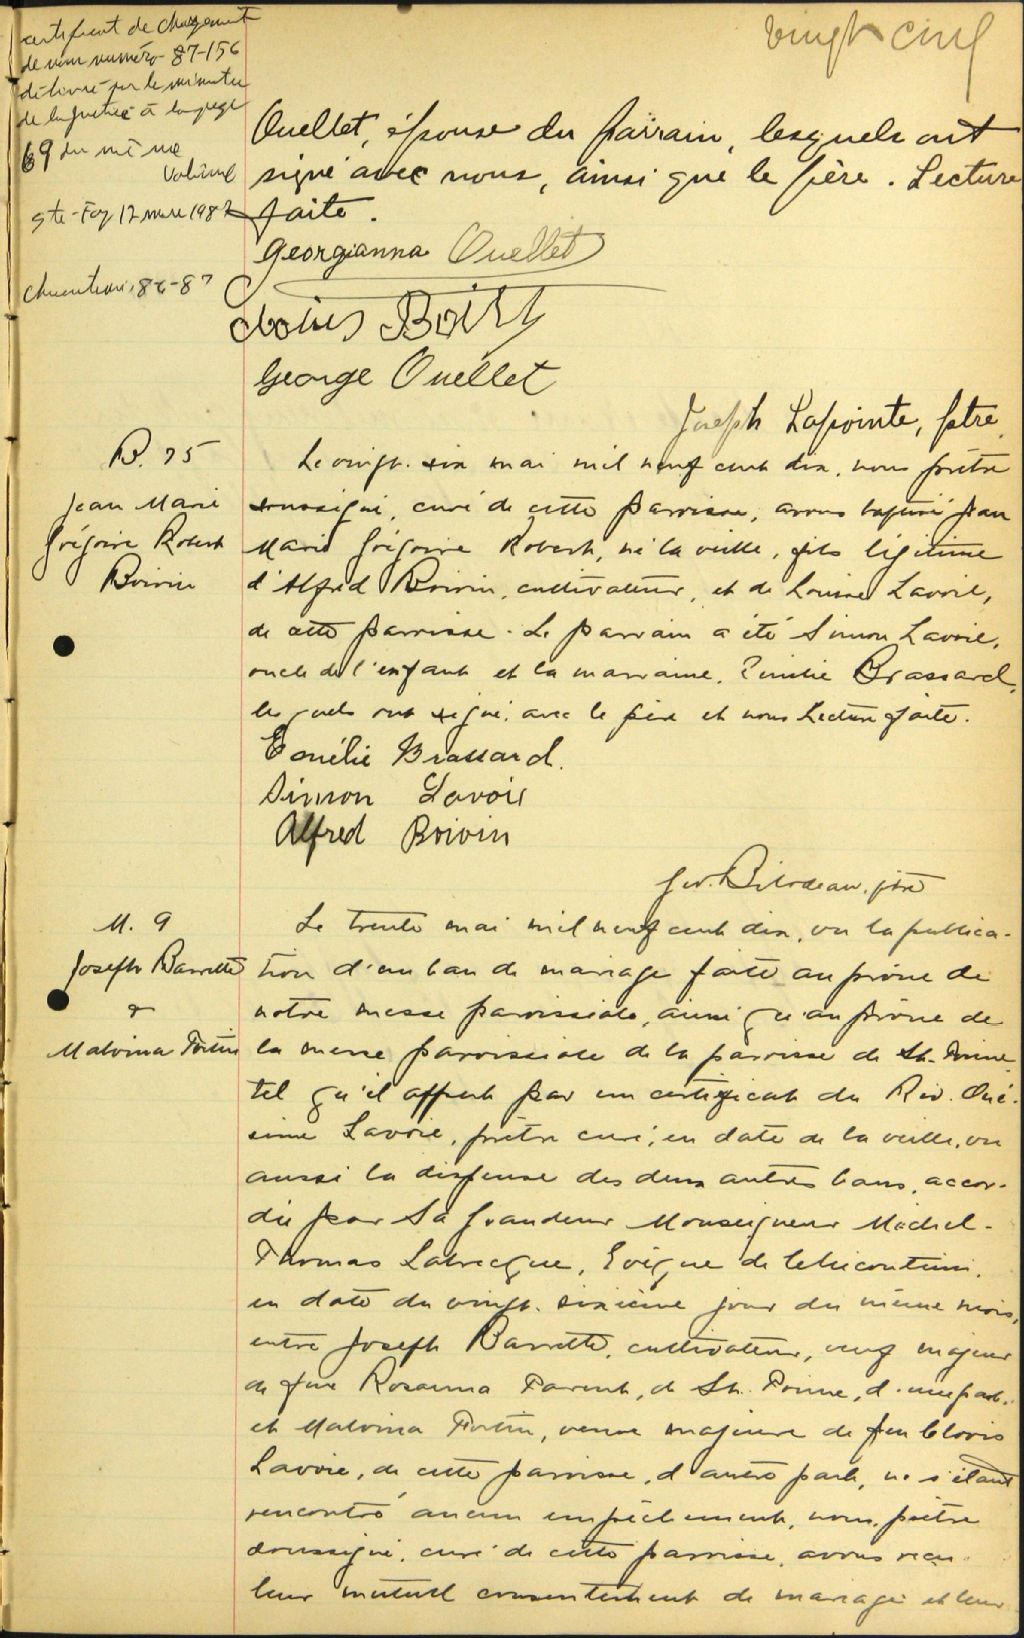 vingt cinq
certificat de changement
de nom numéro 87-156
délivré par le ministre
de la justice à la page
69 du même
volume
Ste-Foy 12 mars 1987
Chicoutimi, 86-87
Ouellet, épouse du parrain, lesquels ont
signé avec nous, ainsi que le père. Lecture
faite.
Georgianna Ouellet
Louis Boily
George Ouellet
Joseph Lapointe, ptre
B. 75
Jean Marie
Grégoire Robert
Boivin
Le vingt-six mai mil neuf cent dix, nous prêtre
soussigné, curé de cette paroisse, avons baptisé Jean
Marie Grégoire Robert, né la veille, fils légitime
d'Alfred Boivin, cultivateur, et de Louise Lavoie,
de cette paroisse. Le parrain a été Simon Lavoie,
oncle de l'enfant et la marraine, Emilie Brassard,
lesquels ont signé, avec le père et nous Lecture faite.
Emélie Brassard.
Simon Lavoie
Alfred Boivin
Bilodeau, ptre
M. 9
Joseph Barrette
&
Malvina Fortin
Le trente mai mil neuf cent dix, vu la publica-
tion d'un ban de mariage faite au prône de
notre messe paroissiale, ainsi qu'au prône de
la messe paroissiale de la paroisse de St. Prime
tel qu'il appert par un certificat du Rév. Oné-
sime Lavoie, prêtre curé, en date de la veille, vu
aussi la dispense des deux autres bans, accor-
dée par Sa Grandeur Monseigneur Michel-
Thomas Labrecque, Evêque de Chicoutimi,
en date du vingt-sixième jour du même mois,
entre Joseph Barrette, cultivateur, veuf majeur
de feue Rosanna Parent, de St. Prime, d'une part,
et Malvina Fortin, veuve majeure de feu Clovis
Lavoie, de cette paroisse, d'autre part, ne s'étant
rencontré aucun empêchement, nous, prêtre
soussigné, curé de cette paroisse, avons reçu
leur mutuel consentement de mariage et leur